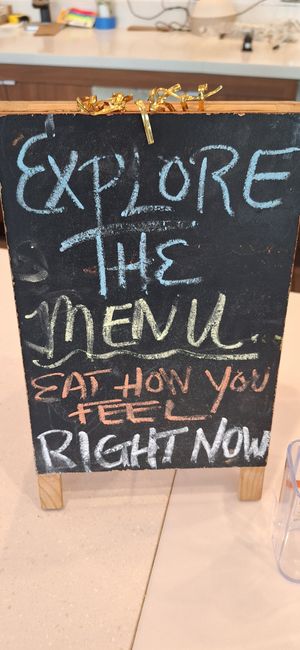 EXPLORE
THE
MENU
EAT HOW YOU
FEEL
RIGHT NOW